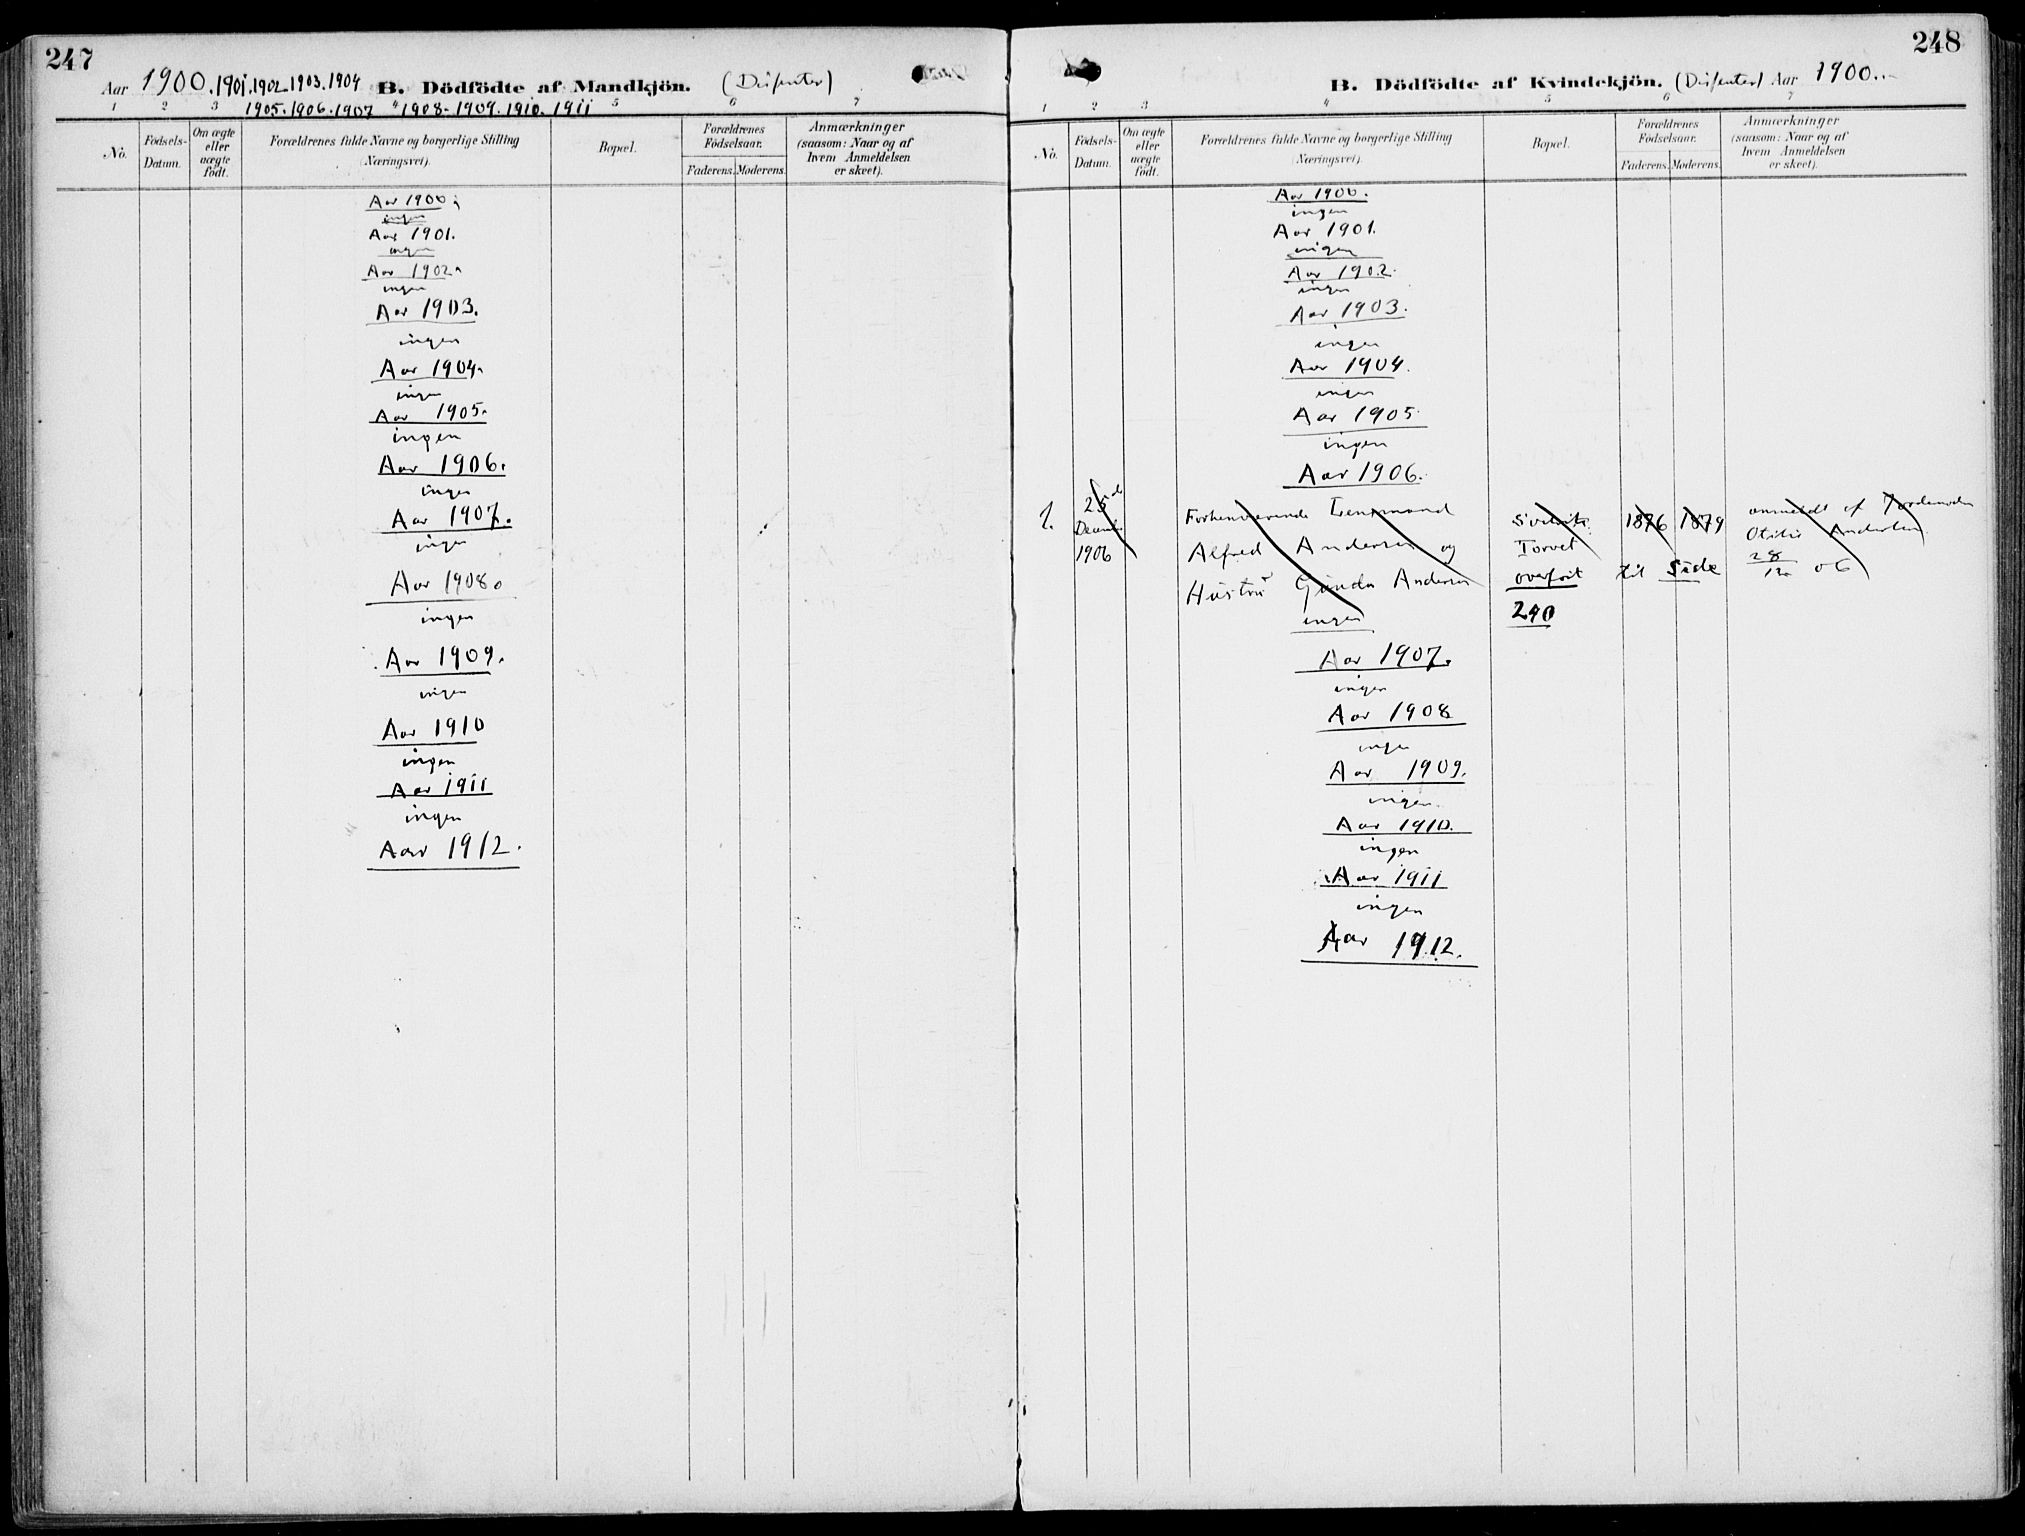 247
Aar 1900. 1901. 1902. 1903. 1904 B. Dödfödte af Mandkjön. (Disenter)
1905. 1906. 1907 1908. 1909. 1910. 1911
1 2 3 4 5 6 7
No.
Födsels-
Datum.
Om ægte
eller
uægte
födt.
Forældrenes fulde Navne og borgerlige Stilling
(Næringsvei).
Bopæl.
Forældrenes
Födselsaar.
Faderens. Moderens.
Anmærkninger
(saasom: Naar og af
hvem Anmeldelsen
er skeet).
Aar 1900.
ingen
Aar 1901.
ingen
Aar 1902.
ingen
Aar 1903.
ingen
Aar 1904.
ingen
Aar 1905.
ingen
Aar 1906.
ingen
Aar 1907.
ingen
Aar 1908.
ingen
Aar 1909.
ingen
Aar 1910
ingen
Aar 1911
ingen
Aar 1912.
248
B. Dödfödte af Kvindekjön. (Disenter) Aar 1900.
1 2 3 4 5 6 7
No.
Födsels-
Datum.
Om ægte
eller
uægte
födt.
Forældrenes fulde Navne og borgerlige Stilling
(Næringsvei).
Bopæl.
Forældrenes
Födselsaar.
Faderens. Moderens.
Anmærkninger
(saasom: Naar og af
hvem Anmeldelsen
er skeet).
Aar 1900.
ingen
Aar 1901.
ingen
Aar 1902.
ingen
Aar 1903.
ingen
Aar 1904.
ingen
Aar 1905
ingen
Aar 1906.
1.
25de
Decemb.
1906
Forhenværende Lensmand
Alfred Andersen og
Hustru Gunda Andersen
Torvet
overfört til Side
240
1876 1879
anmeldt af Jordemoder
Otilie Andersen
28/12 06
ingen
Aar 1907.
ingen
Aar 1908
ingen
Aar 1909.
ingen.
Aar 1910.
ingen
Aar 1911
ingen
Aar 1912.